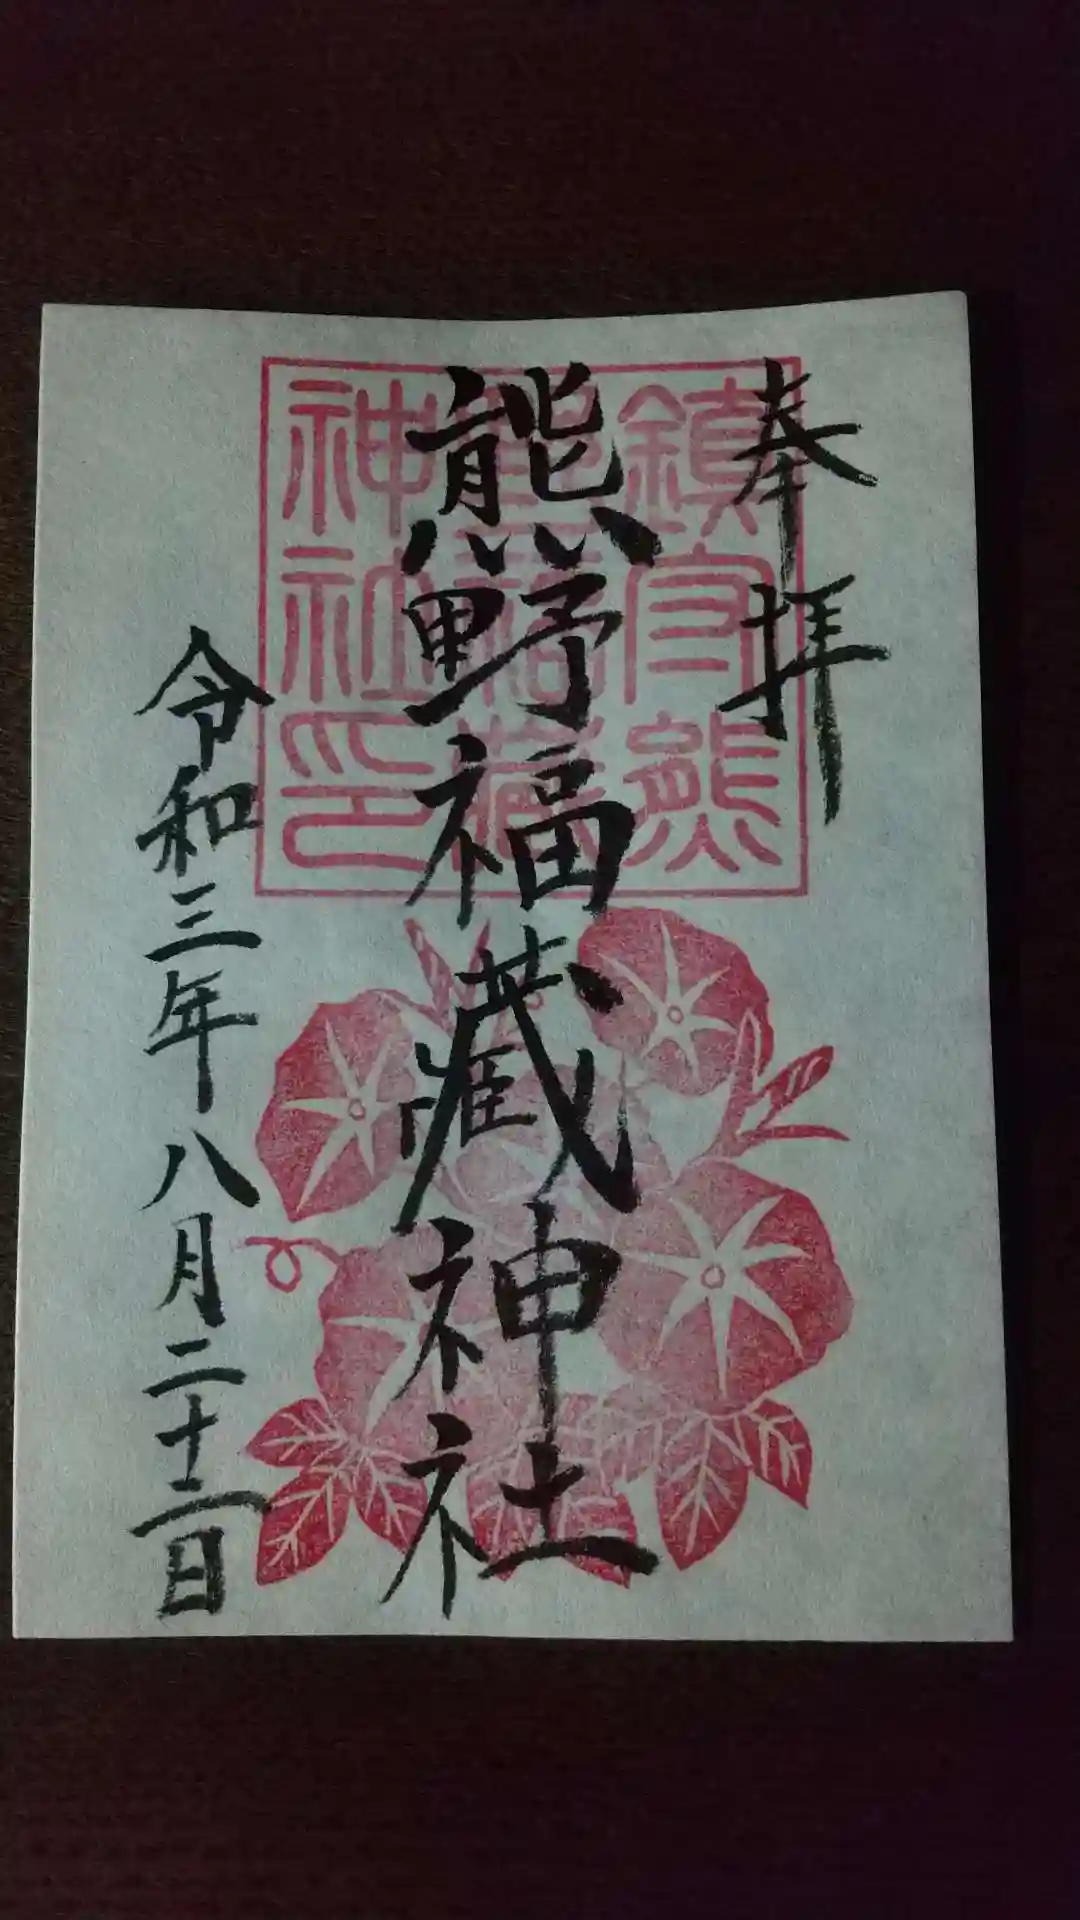 奉拝
熊野福蔵神社
令和三年八月二十二日
鎮守熊
野福蔵
神社印